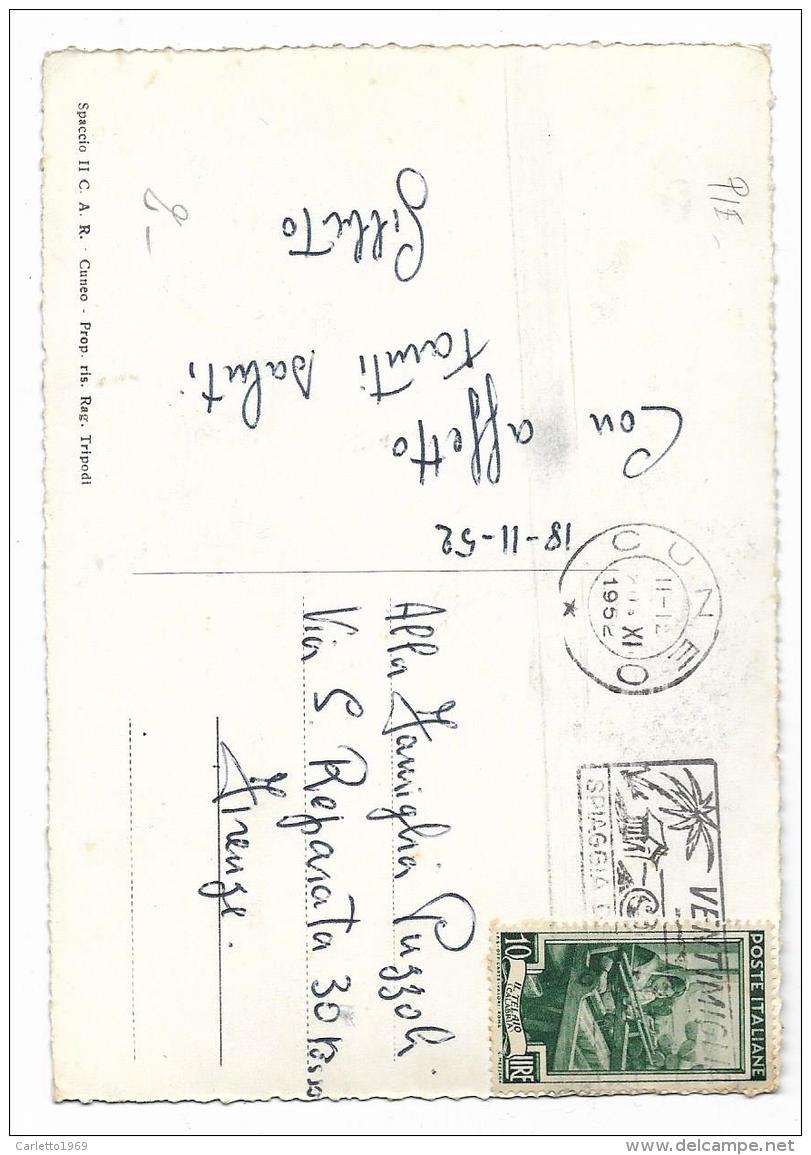 P/E -
2 -
18-11-52
Con affetto
tanti saluti
Gilberto
Alla Famiglia Puzzoli
Via S. Reparata 30 Rosso
Firenze.
Spaccio II C. A. R. - Cuneo - Prop. ris. Rag. Tripodi
CUNEO
11-12
XI
1952
VENTIMIGLI
SPIAGGIA
POSTE ITALIANE
IL TELAIO
CALABRIA
10 LIRE
Carletto1969
delcampe.net